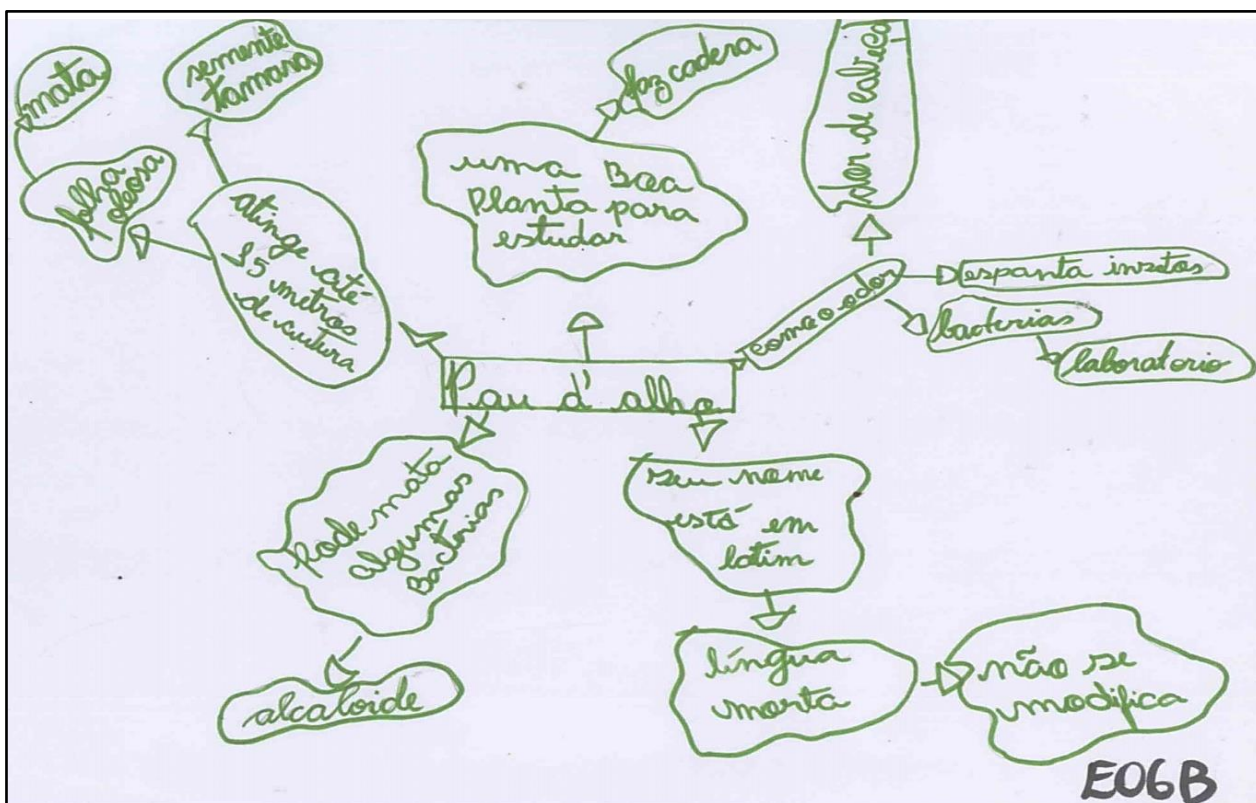 mata
semente
tamara
folha
oleosa
atinge até
15 metros
de cultura
faz cadera
uma Boa
Planta para
estudar
dor de cabeca
com o odor
espanta insetos
bacterias
laboratorio
Pau d' alho
pode mata
algumas
Bactérias
alcaloide
seu nome
está em
latim
língua
morta
não se
modifica
E06B